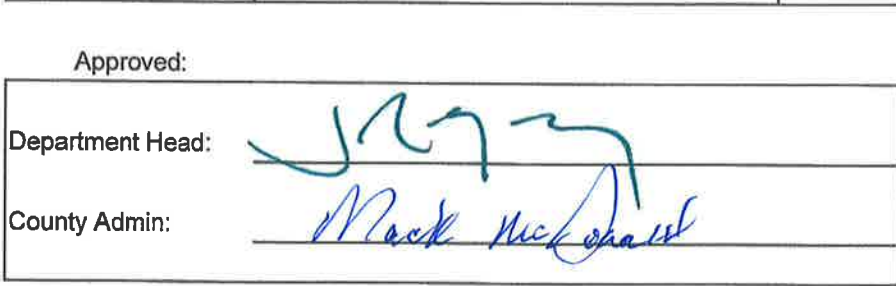 Approved:
Department Head:
County Admin: Mack McDonald